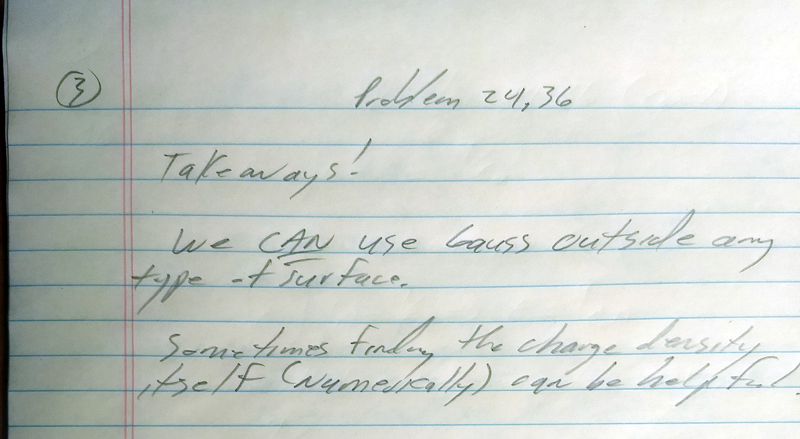 ③ Problem 24,36
Takeaways!
We CAN use Gauss outside any
type of surface.
Sometimes finding the charge density
itself (numerically) can be helpful.